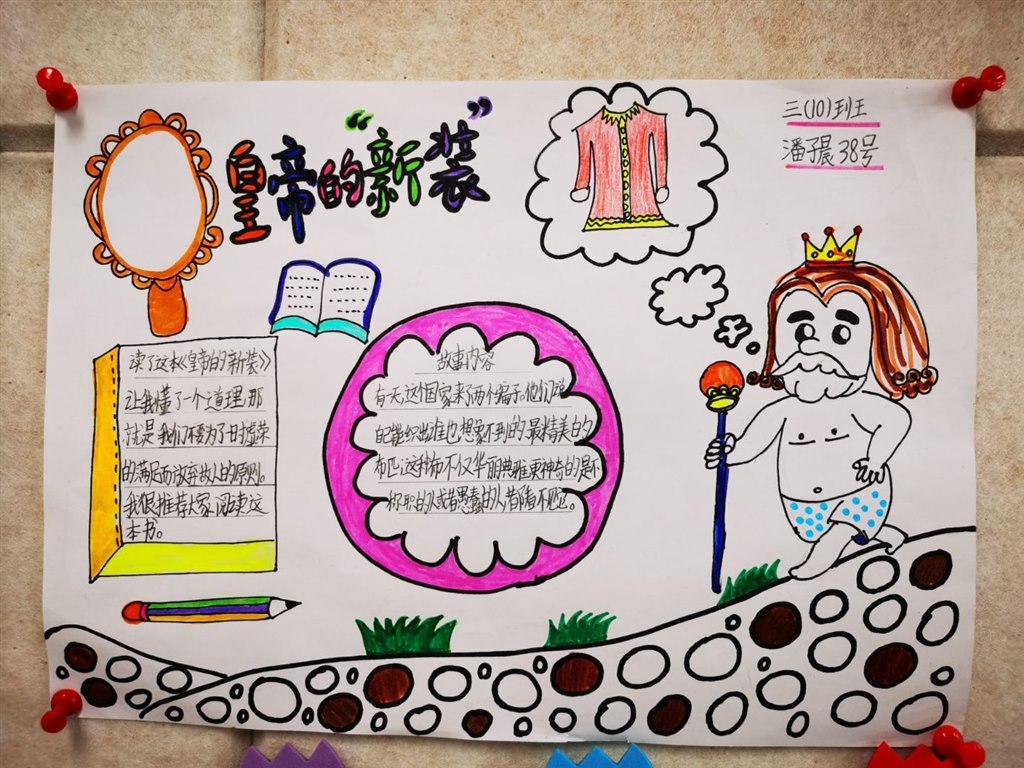 “皇帝的新装”
三(10)班
潘子晨 38号
读了这本《皇帝的新装》
让我懂了一个道理,那
就是我们不要为了甘虚荣
的满足而放弃做人的原则。
我很推荐大家阅读这
本书。
故事内容
有一天,这个国家来了两个骗子,他们说
自己能织出谁也想象不到的最精美的
布匹,这种布不仅华丽典雅,更神奇的是不
称职的人或者愚蠢的人皆看不见它。